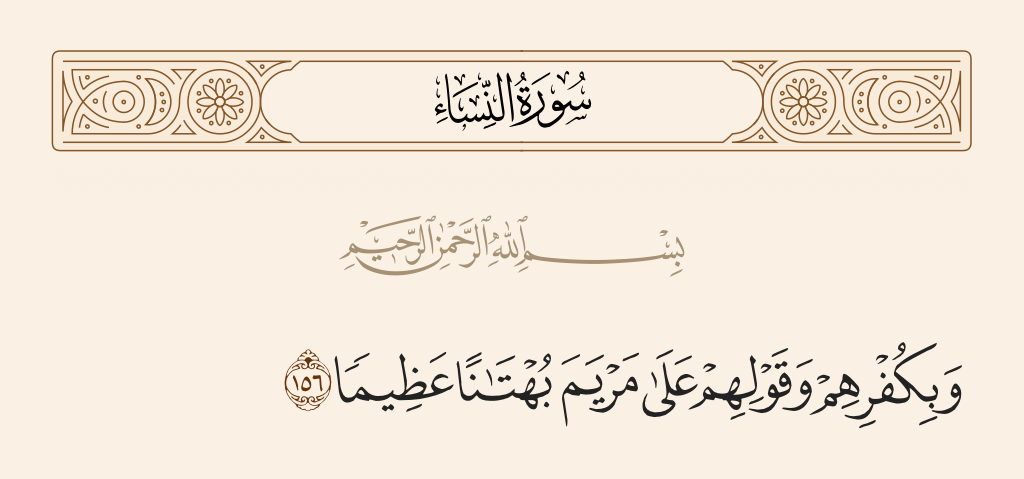 سُورَةُ النِّسَاءِ
بِسْمِ ٱللَّهِ ٱلرَّحْمَٰنِ ٱلرَّحِيمِ
وَبِكُفْرِهِمْ وَقَوْلِهِمْ عَلَىٰ مَرْيَمَ بُهْتَـٰنًا عَظِيمًا ١٥٦